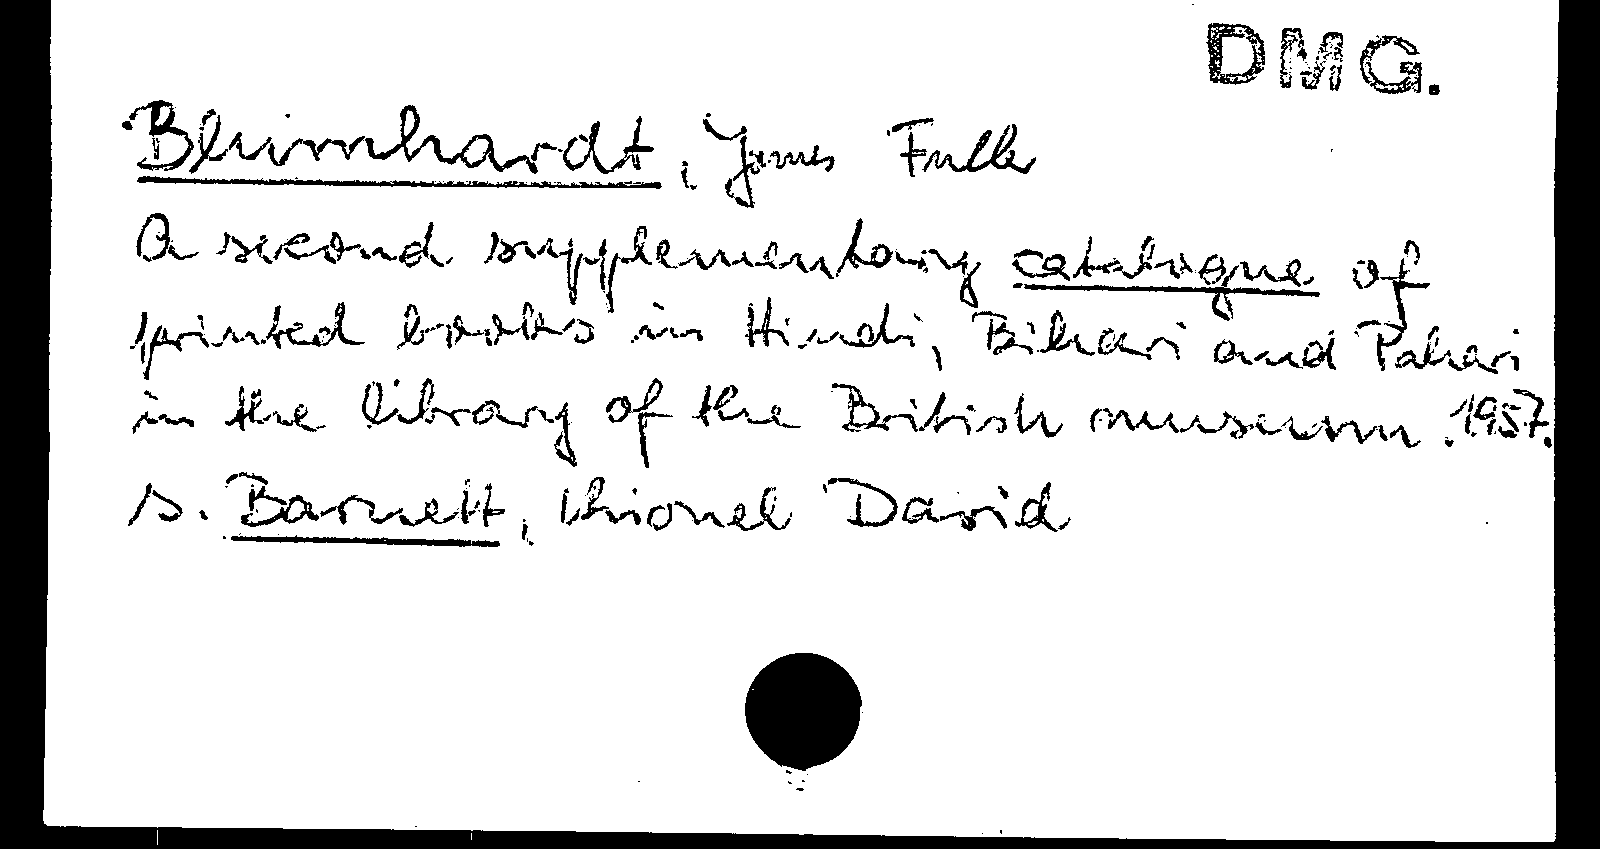 DMG.
Blumhardt, James Fuller
A second supplementary catalogue of
printed books in Hindi, Bihari and Pahari
in the library of the British museum. 1957.
s. Barnett, Lionel David